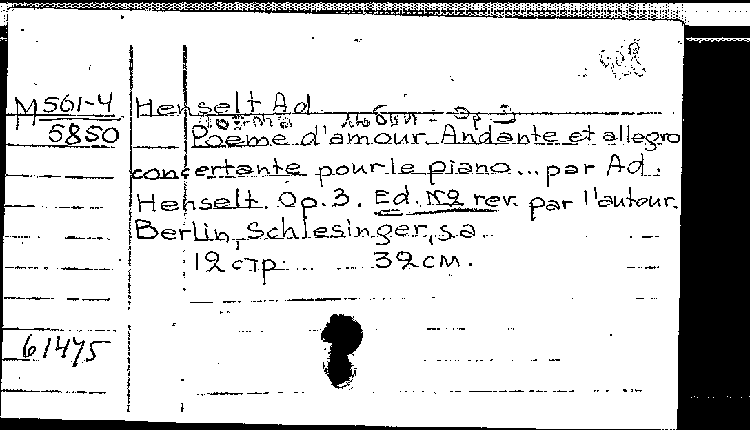 М 561-4
5850
Henselt Ad.
Поэма любви. Op. 3
Poeme d'amour. Andante et allegro
concertante pour le piano... par Ad.
Henselt. Op. 3. Ed. №2 rev. par l'autour.
Berlin, Schlesinger, s.a.
12 стр. 32 см.
61475